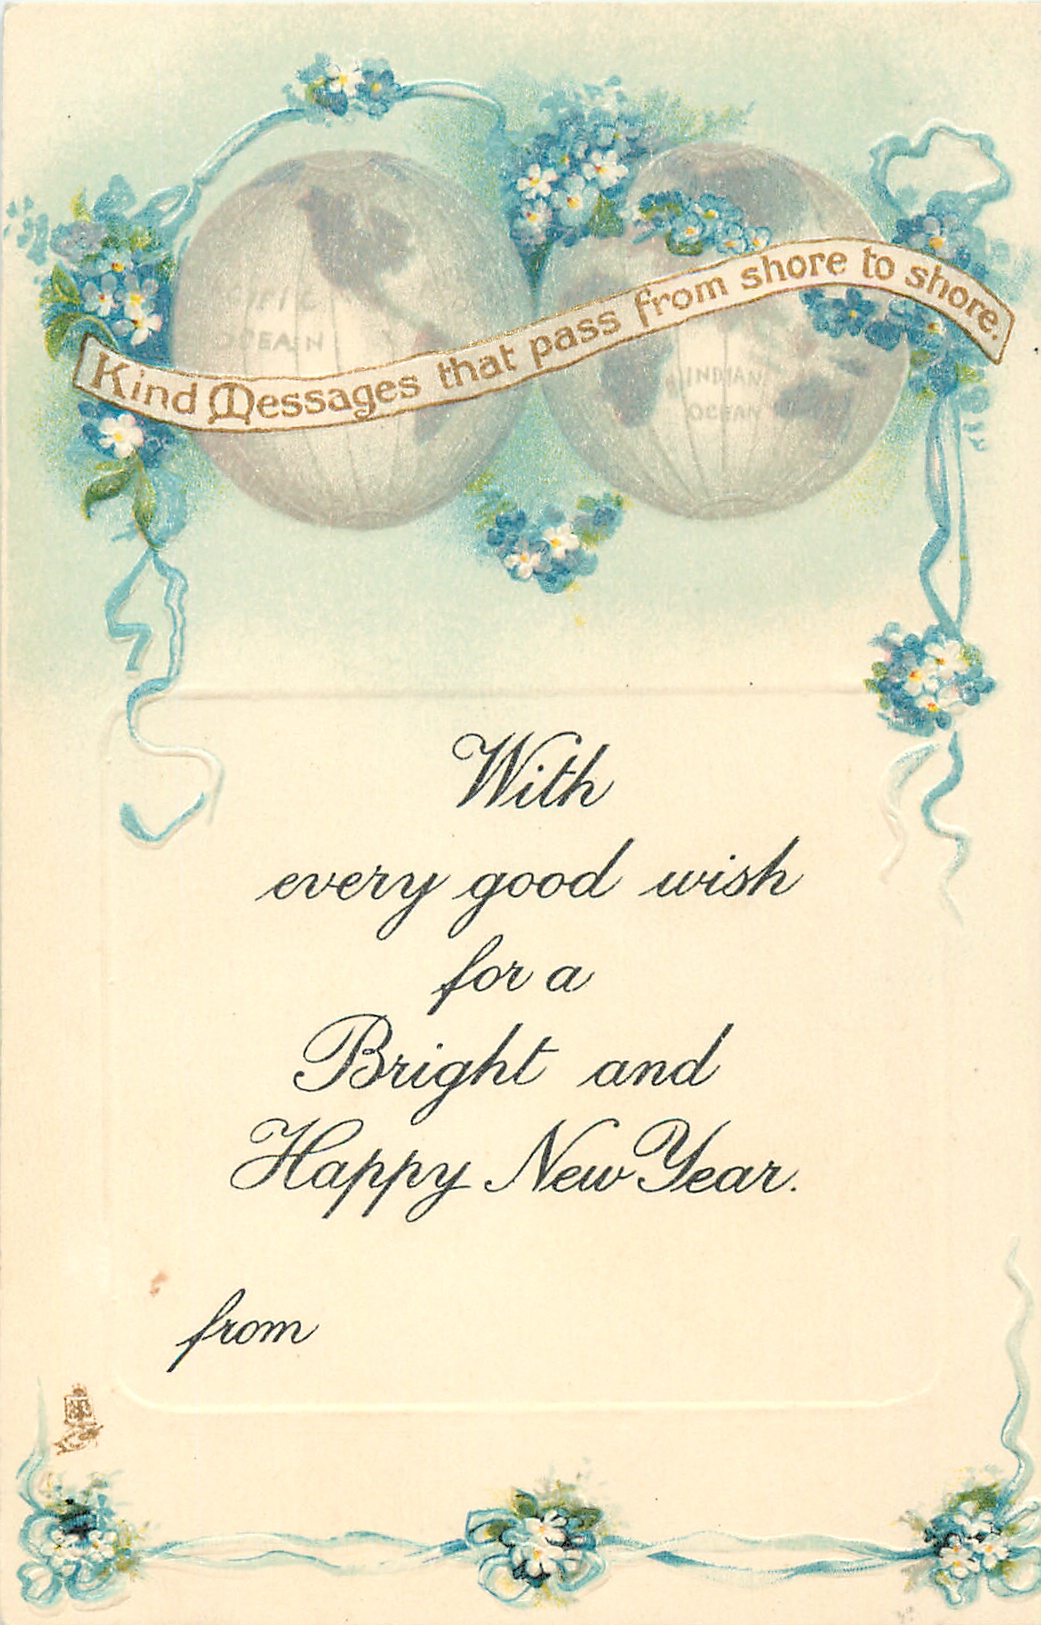 Kind Messages that pass from shore to shore.
OCEAN
INDIAN
OCEAN
With
every good wish
for a
Bright and
Happy New Year.
from